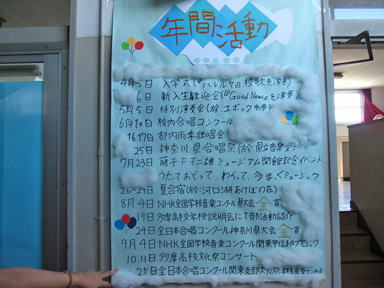 年間活動
4月5日 入学式(『ハレルヤ』、校歌を演奏)
6日 新入生歓迎会(『Good News』を演奏)
5月5日 特別演奏会(於:エポック中原)
6月10日 校内合唱コンクール
16,17日 部内
25日 神奈川県合唱祭(於:県立音楽堂)
7月23日 藤子・F・不二雄ミュージアム開館記念イベント
うたっておどって、わらって、多まぐミュージック
26~29日 夏合宿(於:河口湖あけぼの荘)
8月4日 NHK全国学校音楽コンクール県大会 金賞
19日 多摩高校学校説明会にて部活動紹介
24日 全日本合唱コンクール神奈川県大会 金賞
9月4日 NHK全国学校音楽コンクール関東甲信越ブロック
10,11日 多摩高校文化祭コンサート
25日 全日本合唱コンクール関東支部大会